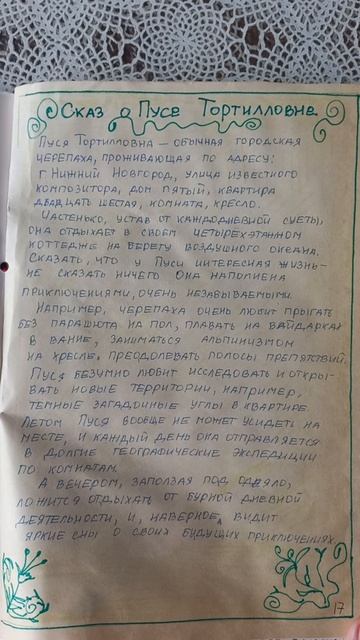 Сказ о Пусе Тортилловне.
Пуся Тортилловна – обычная городская
черепаха, проживающая по адресу:
г. Нижний Новгород, улица известного
композитора, дом пятый, квартира
двадцать шестая, комната, кресло.
Частенько, устав от каждодневной суеты,
она отдыхает в своем четырехэтажном
коттедже на берегу воздушного океана.
Сказать, что у Пуси интересная жизнь–
не сказать ничего. Она наполнена
приключениями, очень незабываемыми.
Например, черепаха очень любит прыгать
без парашюта на пол, плавать на байдарках
в ванне, заниматься альпинизмом
на кресле, преодолевать полосы препятствий.
Пуся безумно любит исследовать и откры-
вать новые территории, например,
темные загадочные углы в квартире.
Летом Пуся вообще не может усидеть на
месте, и каждый день она отправляется
в долгие географические экспедиции
по комнатам.
А вечером, заползая под одеяло,
ложится отдыхать от бурной дневной
деятельности, и, наверное, видит
яркие сны о своих будущих приключениях.
17